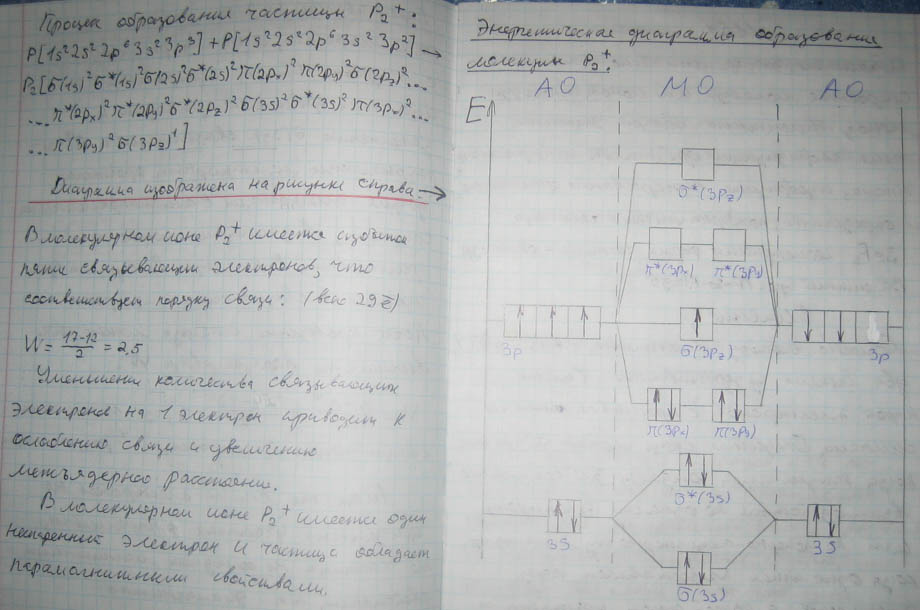 Процесс образования частицы P₂⁺:
P[1s²2s²2p⁶3s²3p³]+P[1s²2s²2p⁶3s²3p²]→
P₂[σ(1s)²σ*(1s)²σ(2s)²σ*(2s)²π(2pₓ)²π(2pᵧ)²σ(2p_z)²...
...π*(2pₓ)²π*(2pᵧ)²σ*(2p_z)²σ(3s)²σ*(3s)²π(3pₓ)²...
...π(3pᵧ)²σ(3p_z)¹]
Диаграмма изображена на рисунке справа.→
В молекулярном ионе P₂⁺ имеется избыток
пяти связывающих электронов, что
соответствует порядку связи: (всего 29ē)
W=(17-12)/2=2,5
Уменьшение количества связывающих
электронов на 1 электрон приводит к
ослаблению связи и увеличению
межъядерного расстояния.
В молекулярном ионе P₂⁺ имеется один
неспаренный электрон и частица обладает
парамагнитными свойствами.
Энергетическая диаграмма образования
молекулы P₂⁺:
АО МО АО
E
σ*(3p_z)
π*(3pₓ) π*(3pᵧ)
3p σ(3p_z) 3p
π(3pₓ) π(3pᵧ)
σ*(3s)
3S 3S
σ(3s)